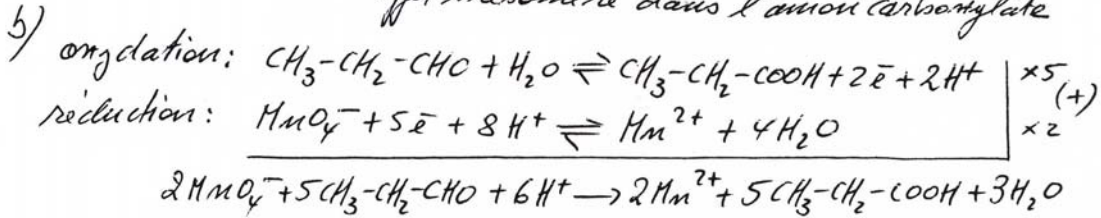 effet mésomère dans l'anion carboxylate
b) oxydation: CH₃-CH₂-CHO + H₂O ⇌ CH₃-CH₂-COOH + 2ē + 2H⁺ | ×5 (+)
réduction: MnO₄⁻ + 5ē + 8H⁺ ⇌ Mn²⁺ + 4H₂O | ×2
2MnO₄⁻ + 5CH₃-CH₂-CHO + 6H⁺ → 2Mn²⁺ + 5CH₃-CH₂-COOH + 3H₂O